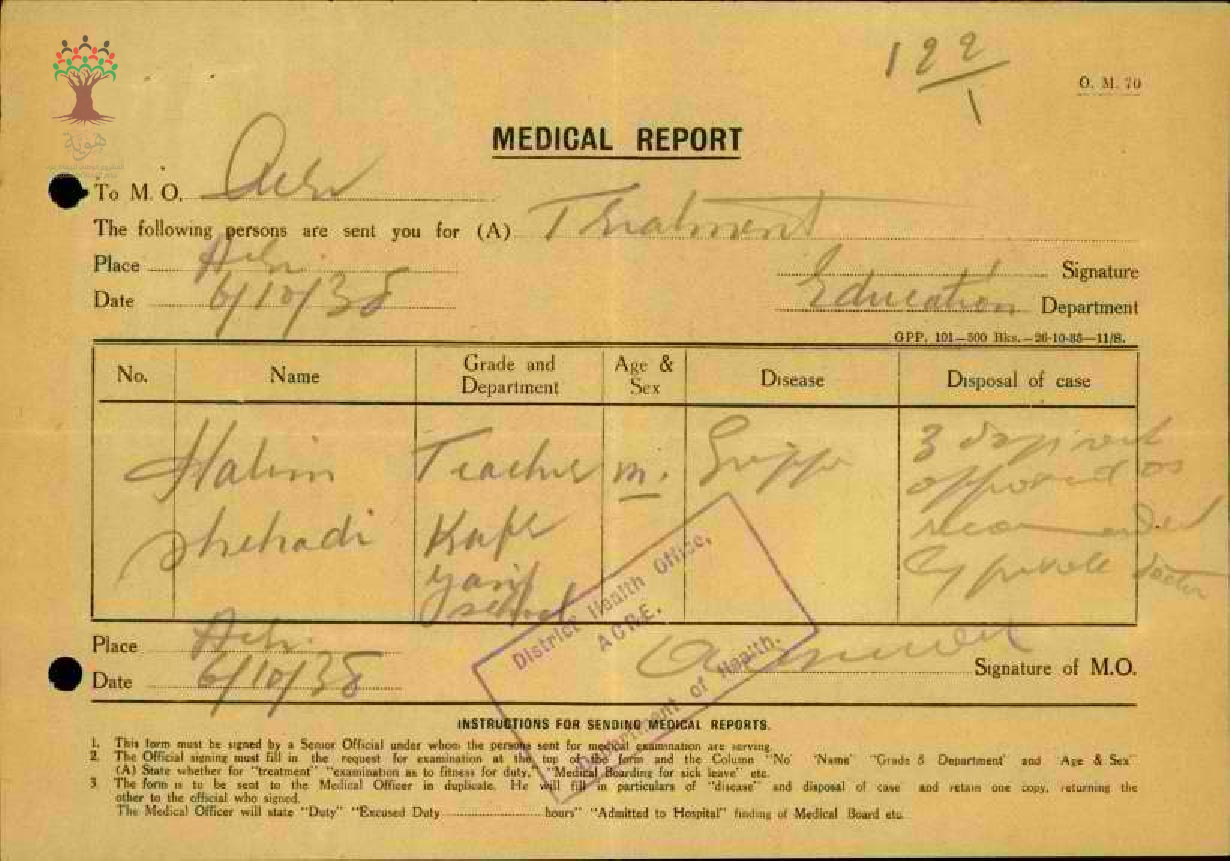 122/1
O. M. 70
هوية
MEDICAL REPORT
To M. O. Acre
The following persons are sent you for (A) Treatment
Place Acre
Signature
Date 6/10/38
Education Department
GPP. 101—500 Bks.—26-10-35—11/8.
No. Name Grade and Department Age & Sex Disease Disposal of case
Halim Teacher m. Grippe 3 days
approved as
Shehadi Kafr recommended
Yasif by private doctor
school
District Health Office,
ACRE.
Department of Health.
Place Acre
Signature of M.O.
Date 6/10/38
INSTRUCTIONS FOR SENDING MEDICAL REPORTS.
1. This form must be signed by a Senior Official under whom the persons sent for medical examination are serving.
2. The Official signing must fill in the request for examination at the top of the form and the Column "No" 'Name' "Grade & Department' and 'Age & Sex"
(A) State whether for "treatment" "examination as to fitness for duty," "Medical Boarding for sick leave' etc.
3 The form is to be sent to the Medical Officer in duplicate. He will fill in particulars of "disease" and disposal of case and retain one copy, returning the
other to the official who signed.
The Medical Officer will state "Duty" "Excused Duty hours" "Admitted to Hospital" finding of Medical Board etc.